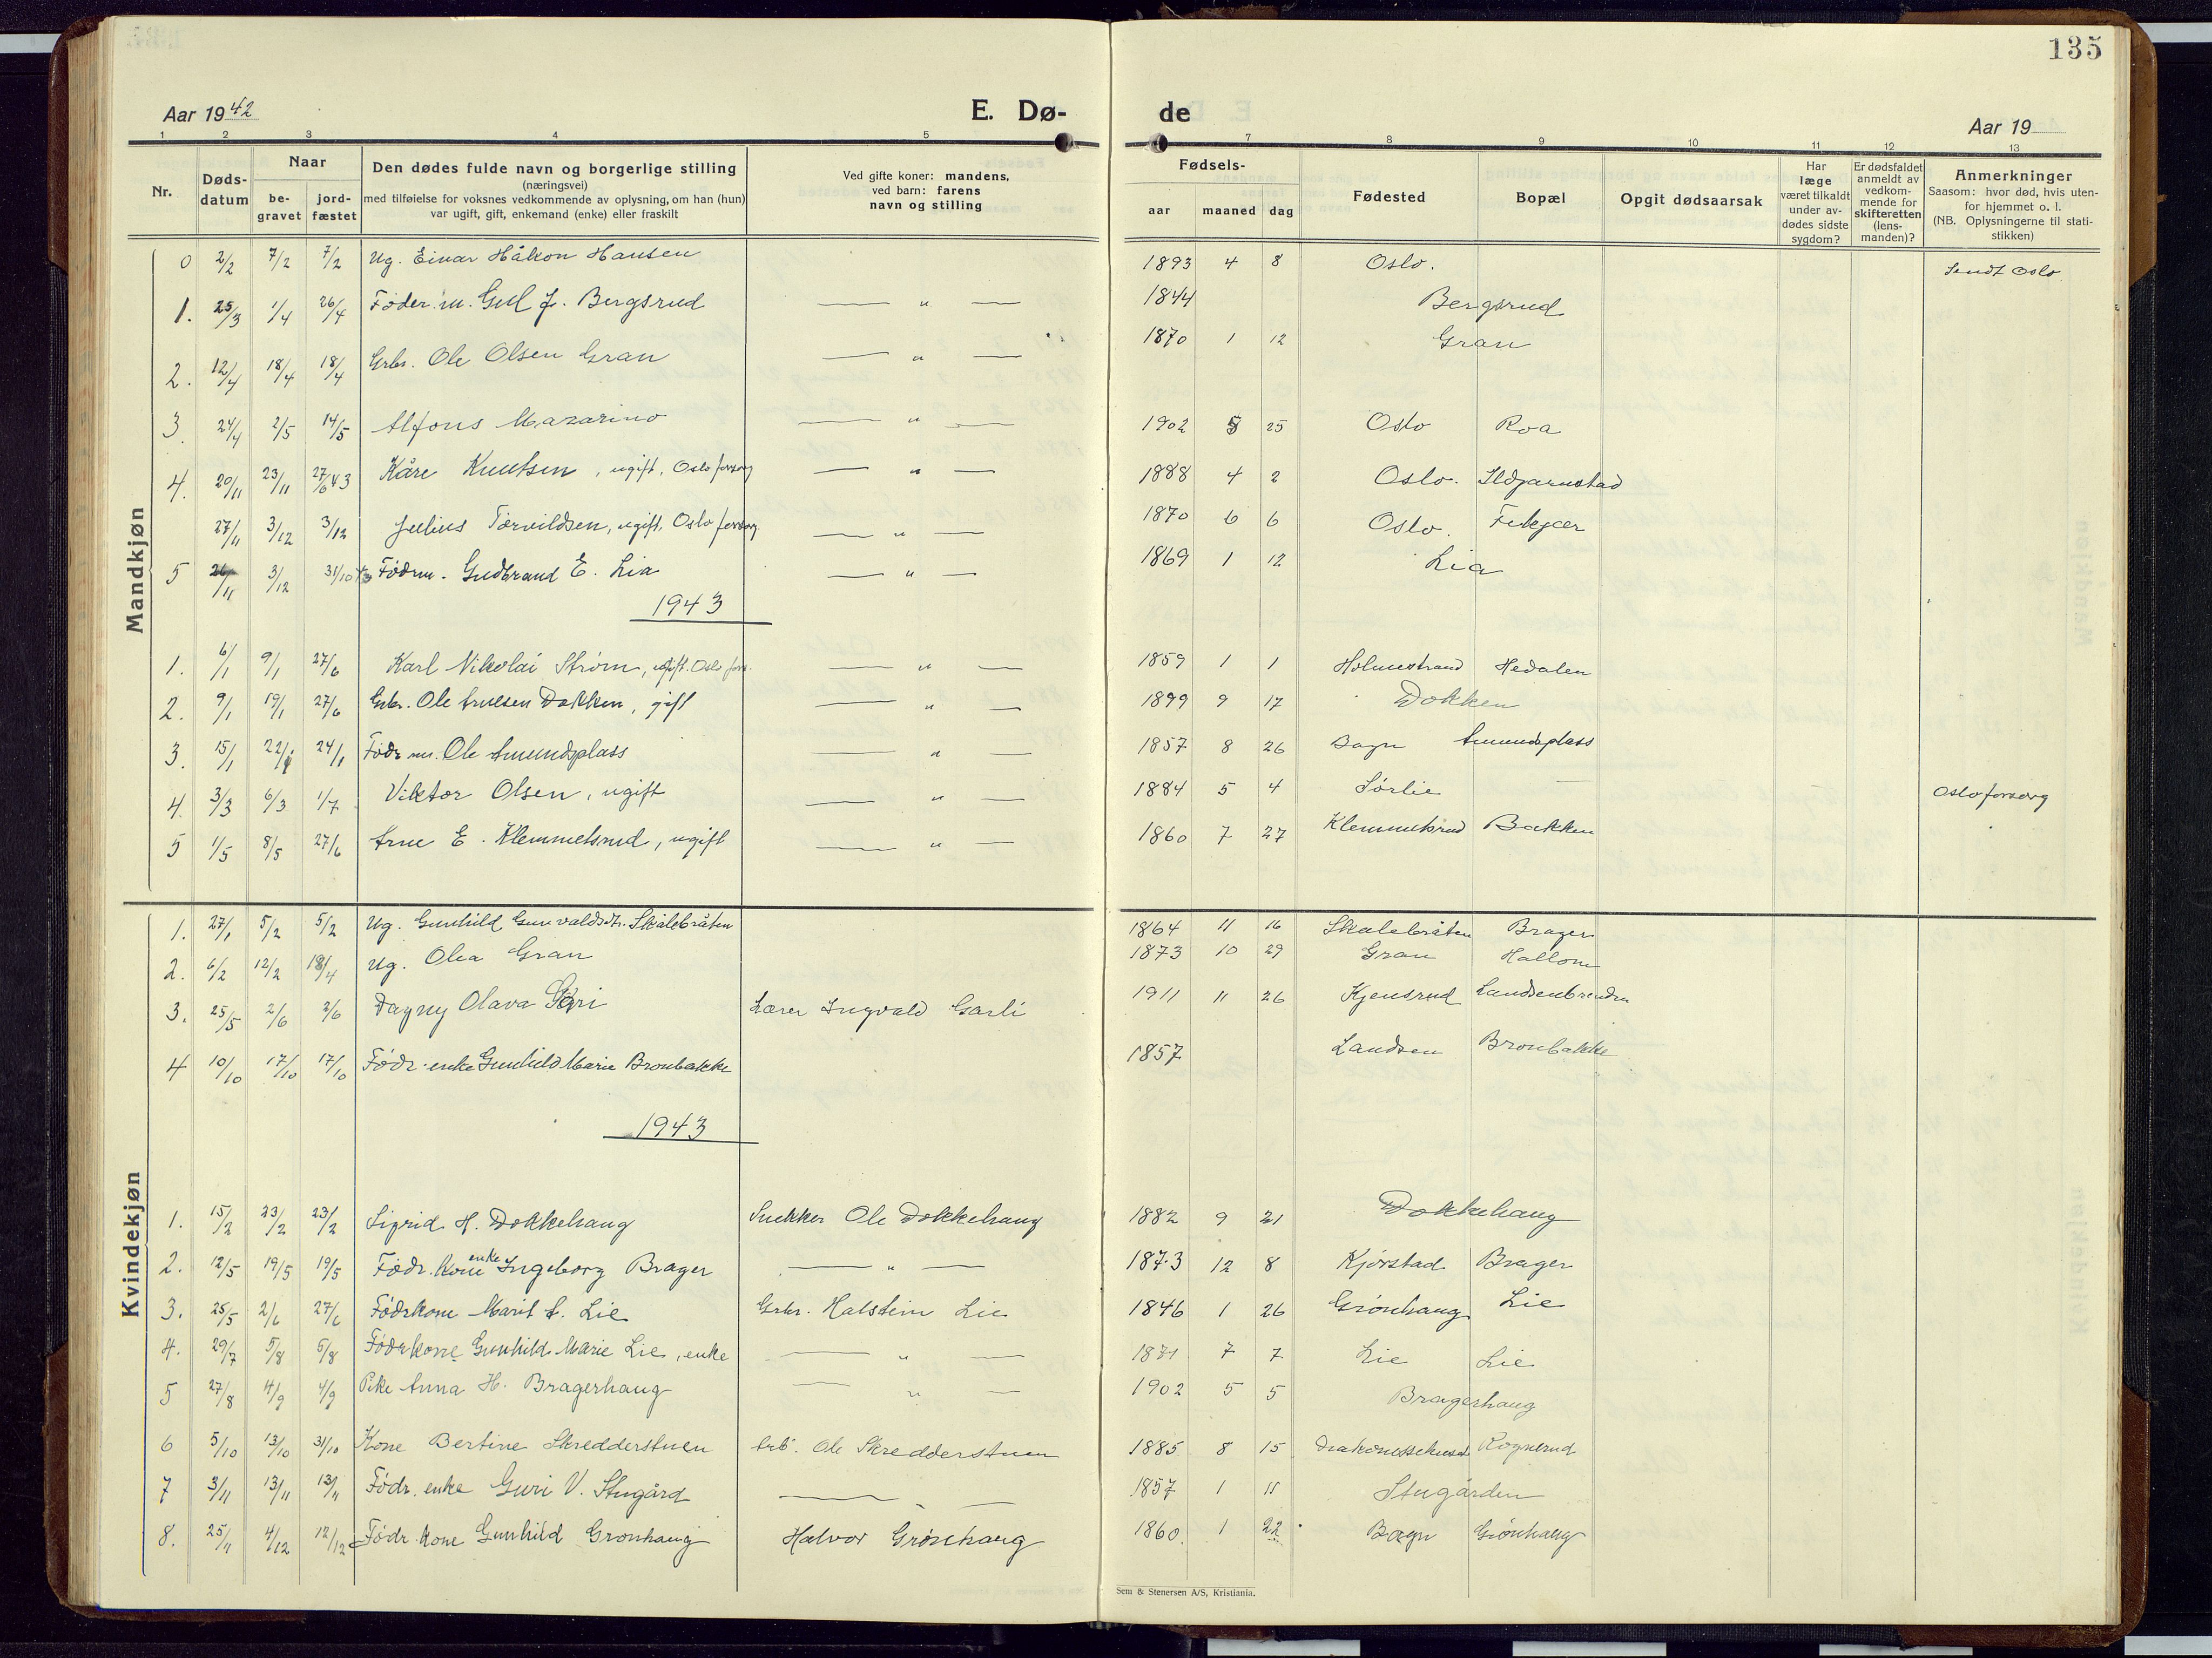 135
Aar 1942
E. Dø-
de
Aar 19
1 2 3 4 5 7 8 9 10 11 12 13
Nr.
Døds-
datum
Naar
be-
gravet
jord-
fæstet
Den dødes fulde navn og borgerlige stilling
(næringsvei)
med tilføielse for voksnes vedkommende av oplysning, om han (hun)
var ugift, gift, enkemand (enke) eller fraskilt
Ved gifte koner: mandens,
ved barn: farens
navn og stilling
Fødsels-
aar maaned dag
Fødested
Bopæl
Opgit dødsaarsak
Har
læge
været tilkaldt
under av-
dødes sidste
sygdom?
Er dødsfaldet
anmeldt av
vedkom-
mende for
skifteretten
(lens-
manden)?
Anmerkninger
Saasom: hvor død, hvis uten-
for hjemmet o. l.
(NB. Oplysningerne til stati-
stikken)
Mandkjøn
0 2/2 7/2 7/2 Ug. Einar Håkon Hansen 1893 4 8 Oslo. Sendt Oslo
1. 25/3 1/4 26/4 Føder.m. Gul J. Bergsrud — " — 1844 Bergsrud
2. 12/4 18/4 18/4 Grbr. Ole Olsen Gran — " — 1870 1 12 Gran
3 24/4 2/5 14/5 Alfons Mazarino — " — 1902 5 25 Oslo Roa
4. 20/11 23/11 27/6 43 Kåre Knutsen, ugift, Oslo forsorg — " — 1888 4 2 Oslo. Ildjarnstad
27/11 3/12 3/12 Julius Torvildsen, ugift, Oslo forsorg. — " — 1870 6 6 Oslo. Fekjær
5 26/11 3/12 31/10 43 Fødrm. Gudbrand E. Lia — " — 1869 1 12 Lia
1943
1. 6/1 9/1 27/6 Karl Nikolai Strøm, ugift. Oslo fors. — " — 1859 1 1 Holmestrand Hedalen
2. 9/1 19/1 27/6 Grbr. Ole Arnesen Dokken, gift — " — 1899 9 17 Dokken
3. 15/1 22/1 24/1 Fødr m. Ole Amundsplass — " — 1857 8 26 Bagn Amundsplass
4. 3/3 6/3 1/7 Viktor Olsen, ugift — " — 1884 5 4 Sørlie — Oslo forsorg
5 1/5 8/5 27/6 Arne E. Klemmetsrud, ugift — " — 1860 7 27 Klemmetsrud Bakken
Kvindekjøn
1. 27/1 5/2 5/2 Ug. Gunhild Gunvaldsdtr. Skålebråten 1864 11 16 Skalebråten Brager
2. 6/2 12/2 18/4 Ug. Olea Gran 1873 10 29 Gran Hallom
3. 25/5 2/6 2/6 Dagny Olava Garli Lærer Ingvald Garli 1911 11 26 Kjensrud Landsenbrenden
4 10/10 17/10 17/10 Fødr. enke Gunhild Marie Bronbakke 1857 Landsen Bronbakke
1943
1. 15/2 23/2 23/2 Sigrid H. Dokkehaug Snekker Ole Dokkehaug 1882 9 21 Dokkehaug
2. 12/5 19/5 19/5 Fødr. kone enke Ingeborg Brager — " — 1873 12 8 Kjørstad Brager
3. 25/5 2/6 27/6 Fødrkone Marit A. Lie Grbr. Halstein Lie 1846 1 26 Grønhaug Lie
4. 29/7 5/8 5/8 Fødrkone Gunhild Marie Lie, enke — " — 1871 7 7 Lie Lie
5 27/8 4/9 4/9 Pike Anna H. Bragerhaug — " — 1902 5 5 Bragerhaug
6 5/10 13/10 31/10 Kone Bertine Skredderstuen Arb. Ole Skredderstuen 1885 8 15 Diakonissehuset Rognerud
7 3/11 13/11 13/11 Fødr. enke Guri V. Stugård — " — 1857 1 11 Stugården
8. 25/11 4/12 12/12 Fødr. kone Gunhild Grønhaug Halvor Grønhaug 1860. 1 22 Bagn Grønhaug
Sem & Stenersen A/S, Kristiania.